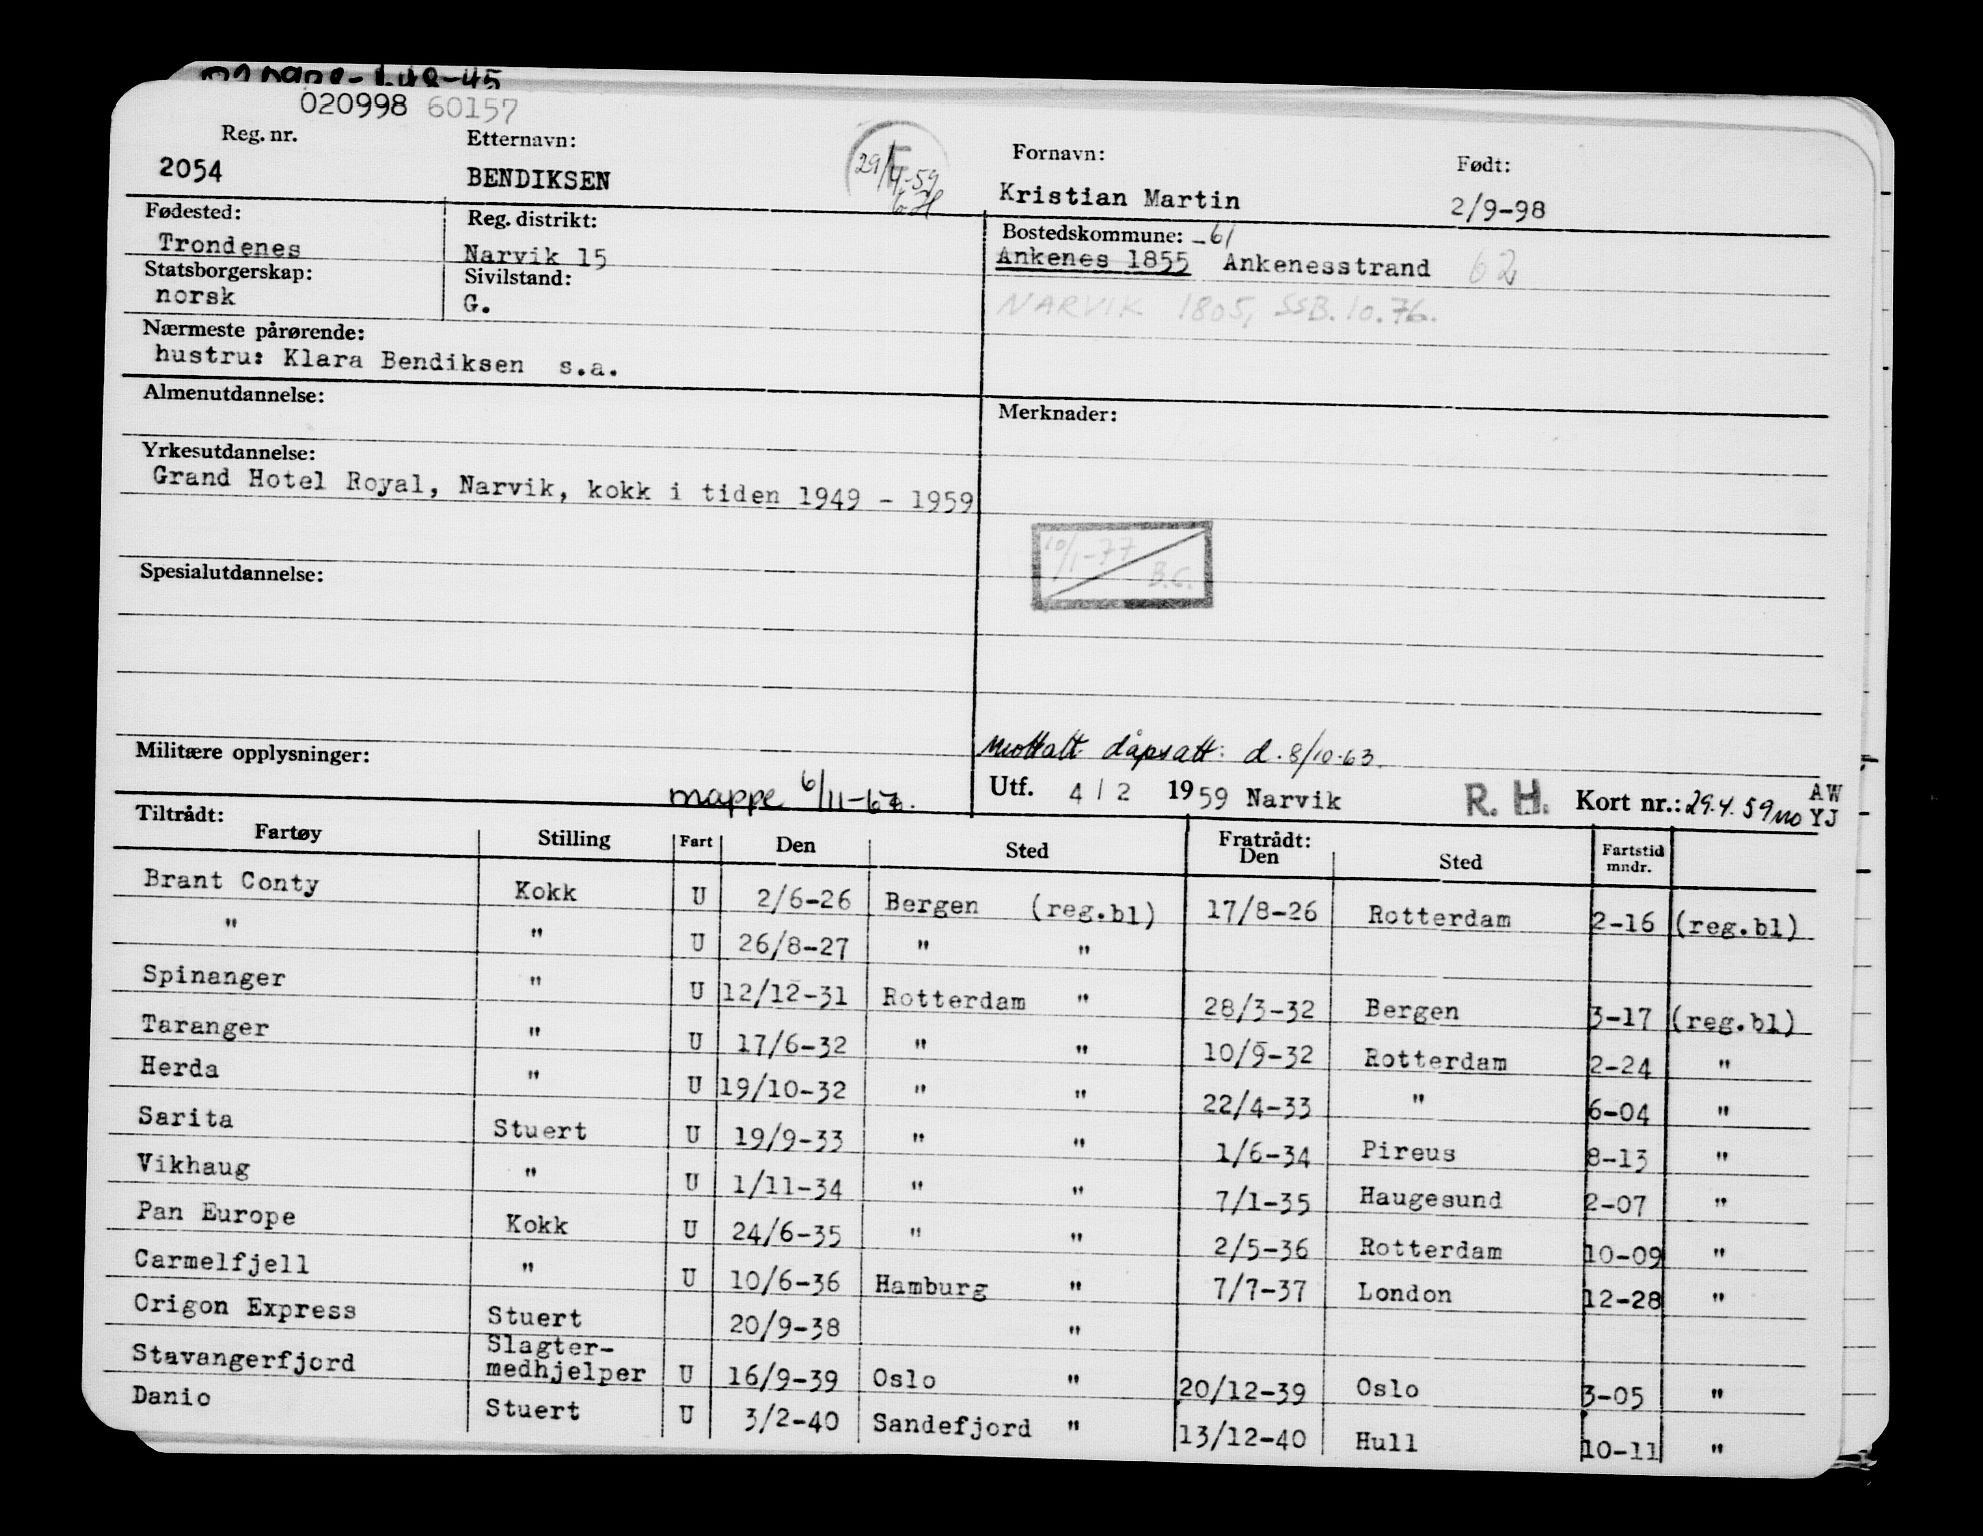 020998 60157
Reg. nr. Etternavn: Fornavn: Født:
2054 BENDIKSEN 29/4-59 Kristian Martin 2/9-98
Fødested: Reg. distrikt: Bostedskommune: -61
Trondenes Narvik 15 Ankenes 1855 Ankenesstrand 62
Statsborgerskap: Sivilstand:
norsk G. NARVIK 1805, SSB. 10.76.
Nærmeste pårørende:
hustru: Klara Bendiksen s.a.
Almenutdannelse: Merknader:
Yrkesutdannelse:
Grand Hotel Royal, Narvik, kokk i tiden 1949 - 1959
10/1-77 B.C.
Spesialutdannelse:
Militære opplysninger: Mottatt dåpsatt: d. 8/10-63.
mappe 6/11-67. Utf. 4/2 1959 Narvik R. H. Kort nr.: 29.4.59 mo AW YJ
Tiltrådt: Fratrådt:
Fartøy Stilling Fart Den Sted Den Sted Fartstid mndr.
Brant Conty Kokk U 2/6-26 Bergen (reg.bl) 17/8-26 Rotterdam 2-16 (reg.bl)
" " U 26/8-27 " "
Spinanger " U 12/12-31 Rotterdam " 28/3-32 Bergen 3-17 (reg.bl)
Taranger " U 17/6-32 " " 10/9-32 Rotterdam 2-24 "
Herda " U 19/10-32 " " 22/4-33 " 6-04 "
Sarita Stuert U 19/9-33 " " 1/6-34 Pireus 8-13 "
Vikhaug " U 1/11-34 " " 7/1-35 Haugesund 2-07 "
Pan Europe Kokk U 24/6-35 " " 2/5-36 Rotterdam 10-09 "
Carmelfjell " U 10/6-36 Hamburg " 7/7-37 London 12-28 "
Origon Express Stuert 20/9-38 "
Stavangerfjord Slagter-medhjelper U 16/9-39 Oslo " 20/12-39 Oslo 3-05 "
Danio Stuert U 3/2-40 Sandefjord " 13/12-40 Hull 10-11 "